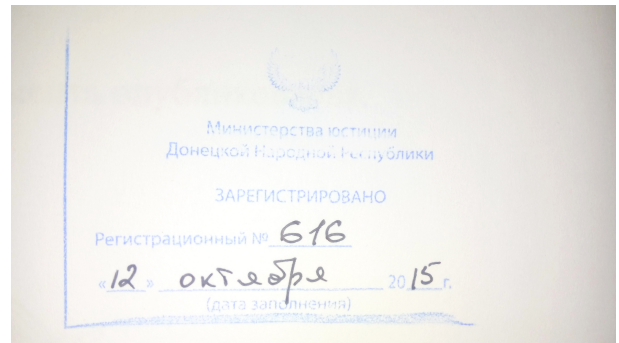 Министерства юстиции
Донецкой Народной Республики
ЗАРЕГИСТРИРОВАНО
Регистрационный № 616
«12» октября 2015 г.
(дата заполнения)